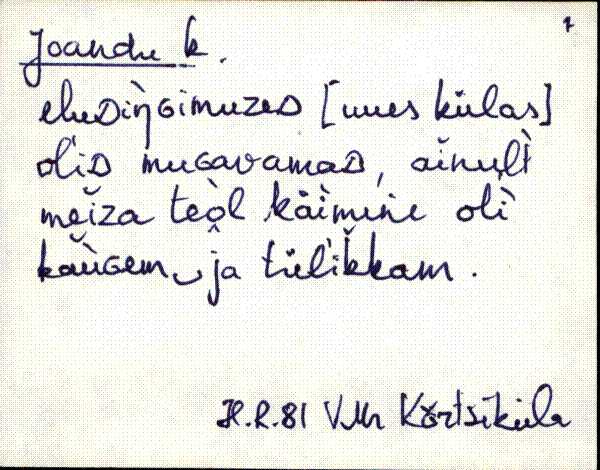 7
Joandu k.
eluᴅiŋ̀ɢimuzeᴅ [uues külas]
olìᴅ muɢavamaᴅ, aĭnuḷt̀
meĭza teòl käìmine olì
kaŭ̀ɢem ja tüĺikkam.
H.R.81 VMr Kõrtsiküla